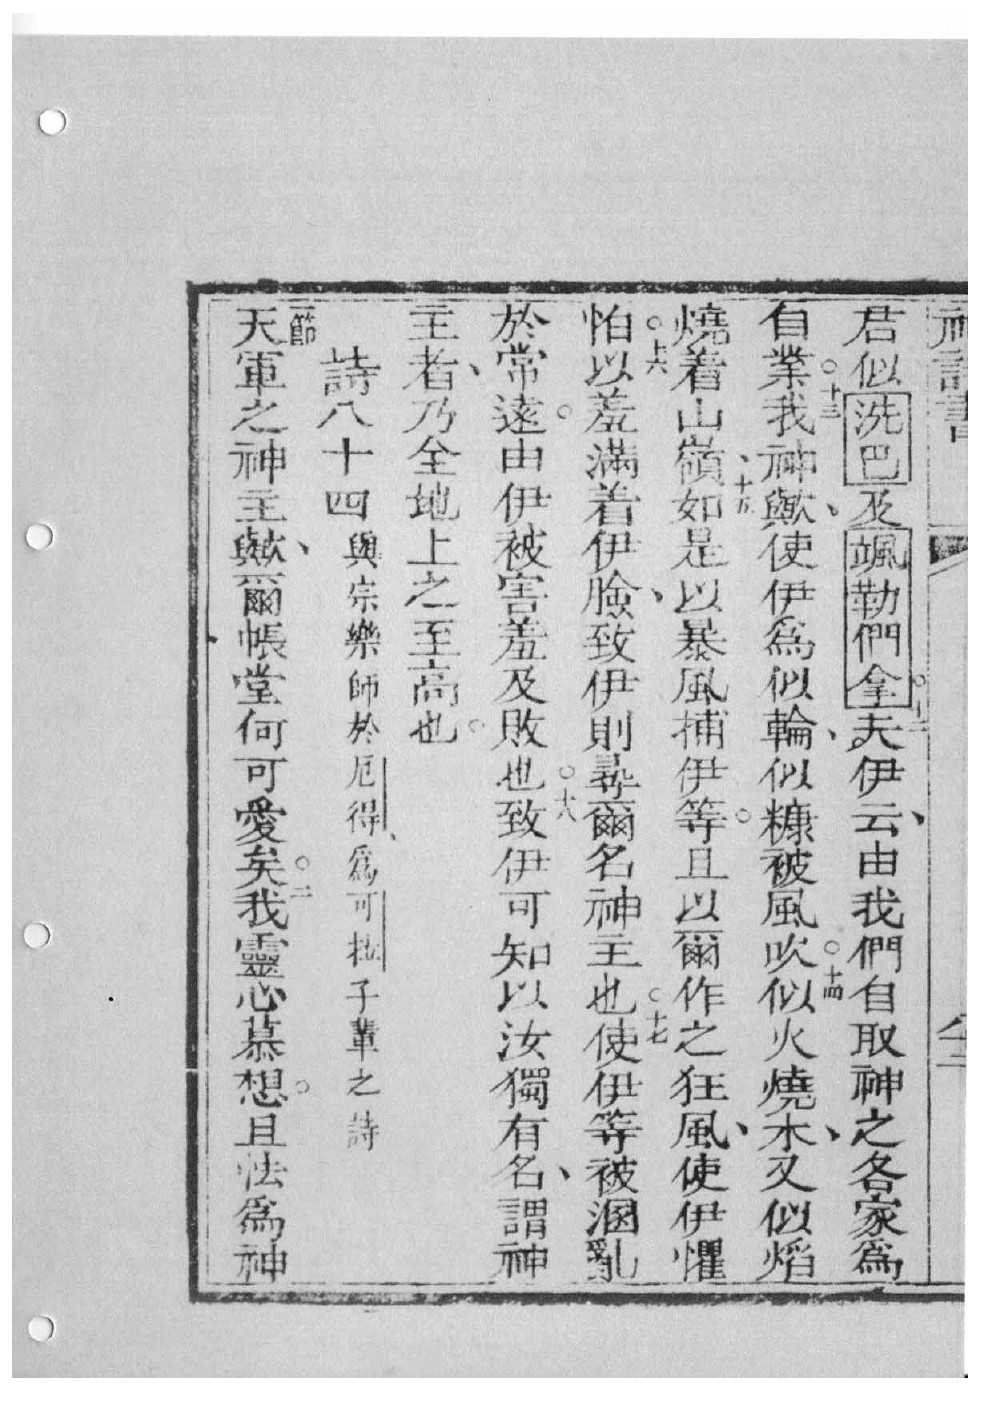 神詩書
君似洗巴及颯勒們拿〇十二夫伊云、由我們自取神之各家爲
自業〇十三我神歟、使伊爲似輪、似糠被風吹〇十四似火燒木、又似焰
燒着山嶺、十五如是以暴風捕伊等〇且以爾作之狂風、使伊懼
怕〇十六以羞滿着伊臉、致伊則尋爾名神主也〇十七使伊等被溷亂
於常遠〇由伊被害羞及敗也〇十八致伊可知以汝獨有名、謂神
主者、乃全地上之至高也〇
詩八十四 與宗樂師於厄得、爲可拉子輩之詩
一節天軍之神主歟、爾帳堂何可愛矣〇二我靈心慕想〇且怯爲神